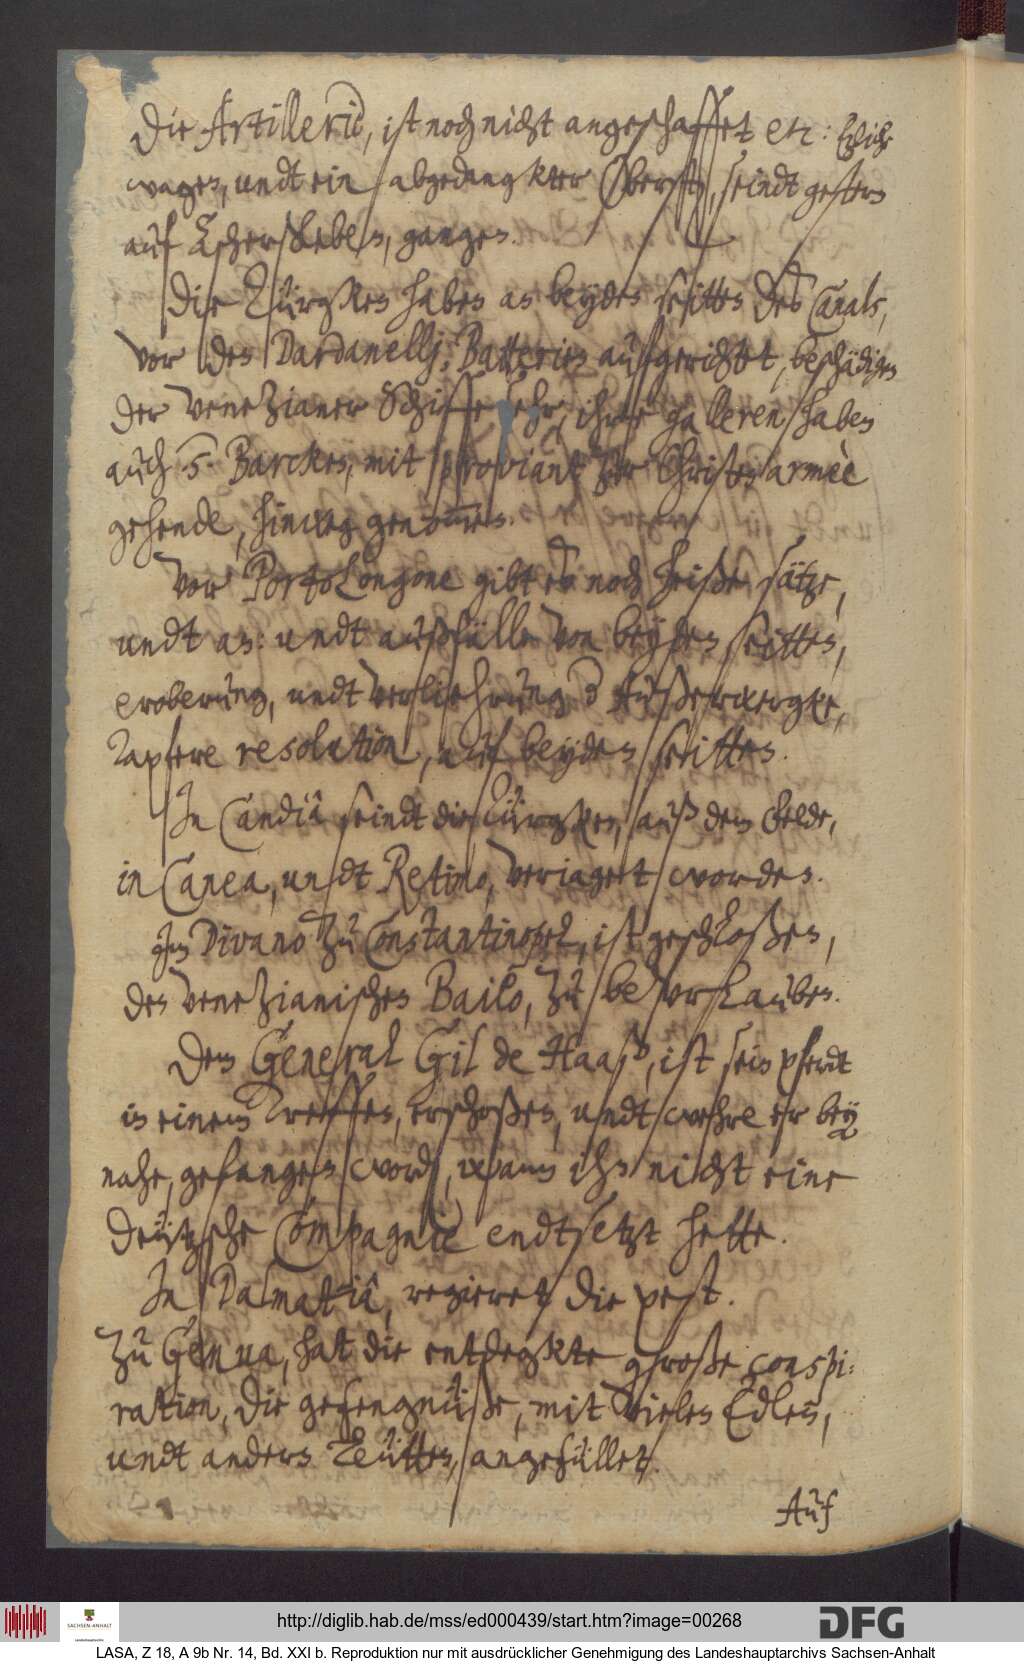 Die Artillerie, ist noch nicht angeschaffet etc: Etzlich
wagen, undt ein abgedangkter Oberster, seindt gestern
auf Aschersleben, gangen.
Die Türgken haben an beyden seitten des Canals,
vor den Dardanellj, Batterien aufgerichtet, beschädigen
der Venezianer Schiffe sehr, ihre galleren haben
auch 5. Barcken, mit proviant zur Christen armèe
gehende, hinweg genom̅en.
Vor Porto Longone gibt es noch heiße sätze,
undt an: undt außfälle von beyden seitten,
eroberung, undt verliehrung d Außerwergke,
Tapfere resolution, auf beyden seitten.
In Candiâ seindt die Türgken, auß dem Felde,
in Canea, undt Retimo, verjaget worden.
Im Divano zu Constantinopel, ist geschloßen,
den Venezianischen Bailo, zu beurlauben.
Dem General Gil de Haaß, ist sein pferdt
in einem Treffen, erschoßen, undt wehre er bey
nahe, gefangen word, wann ihn nicht eine
Deützsche Compagnie endtsetzt hette.
In Dalmatiâ, regieret die pest.
Zu Genua, hat die entdegkte große conspi:
ration, die gefengnüße, mit vielen Edlen,
undt andern Leütten, angefüllet.
Auf
http://diglib.hab.de/mss/ed000439/start.htm?image=00268
SACHSEN-ANHALT
DFG
LASA, Z 18, A 9b Nr. 14, Bd. XXI b. Reproduktion nur mit ausdrücklicher Genehmigung des Landeshauptarchivs Sachsen-Anhalt